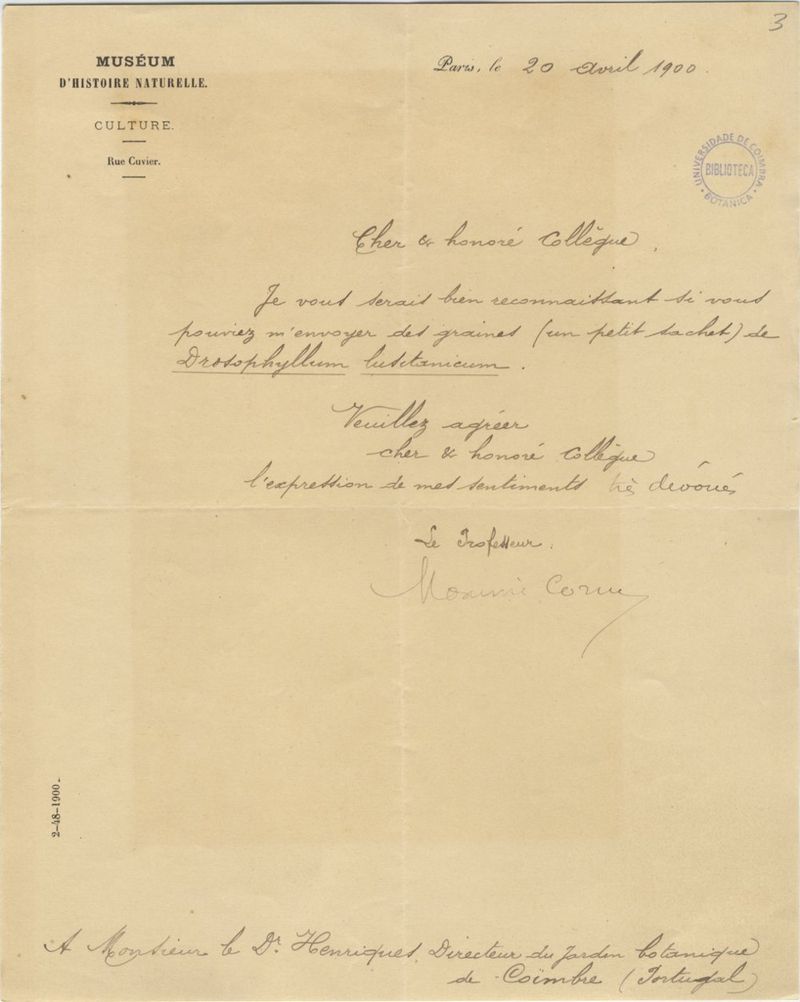 3
MUSÉUM
D'HISTOIRE NATURELLE.
CULTURE.
Rue Cuvier.
Paris, le 20 avril 1900.
UNIVERSIDADE DE COIMBRA
BIBLIOTECA
BOTANICA
Cher & honoré Collègue,
Je vous serais bien reconnaissant si vous
pouviez m'envoyer des graines (un petit sachet) de
Drosophyllum lusitanicum.
Veuillez agréer
cher & honoré Collègue
l'expression de mes sentiments très dévoués
Le Professeur.
Maxime Cornu
2-48-1900.
A Monsieur le Dr. Henriques, Directeur du Jardin botanique
de Coïmbre (Portugal)